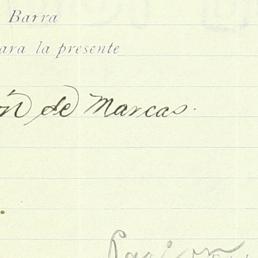 Barra
ara la presente
ón de Marcas.